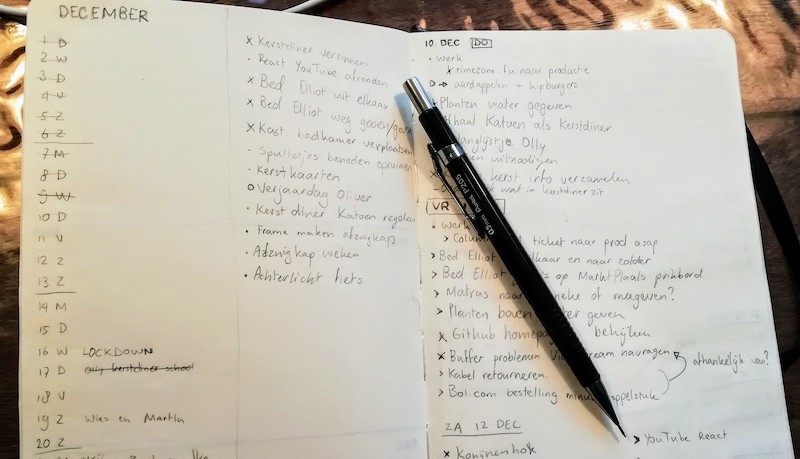 DECEMBER
1 D
2 W
3 D
4 V
5 Z
6 Z
7 M
8 D
9 W
10 D
11 V
12 Z
13 Z
14 M
15 D
16 W LOCKDOWN
17 D Olly kerstdiner school
18 V
19 Z Wies en Martin
20 Z
x Kerstdiner verzinnen
· React YouTube afronden
x Bed Elliot uit elkaar
x Bed Elliot weg gooien/
x Kast badkamer verplaatsen
· Spulletjes beneden opruimen
· Kerstkaarten
o Verjaardag Oliver
· Kerstdiner Katoen regelen
· Frame maken afzuigkap
· Afzuigkap
· Achterlicht fiets
10 DEC DO
· werk
x timezone fix naar productie
D → aardappelen + kipburgers
Planten water gegeven
Afhaal Katoen als Kerstdiner
Olly
uitnodigen
kerst info verzamelen
wat in kerstdiner zit
VR
· werk
> ticket naar prod asap
> Bed Elliot elkaar en naar zolder
> Bed Elliot op Marktplaats prikbord
> Matras naar of meegeven?
> Planten boven water geven
x Github bekijken
x Buffer problemen navragen
afhankelijk van?
> Kabel retourneren
> Bol.com bestelling
ZA 12 DEC
x Konijnenhok
> YouTube React
0.5mm Pentel P205